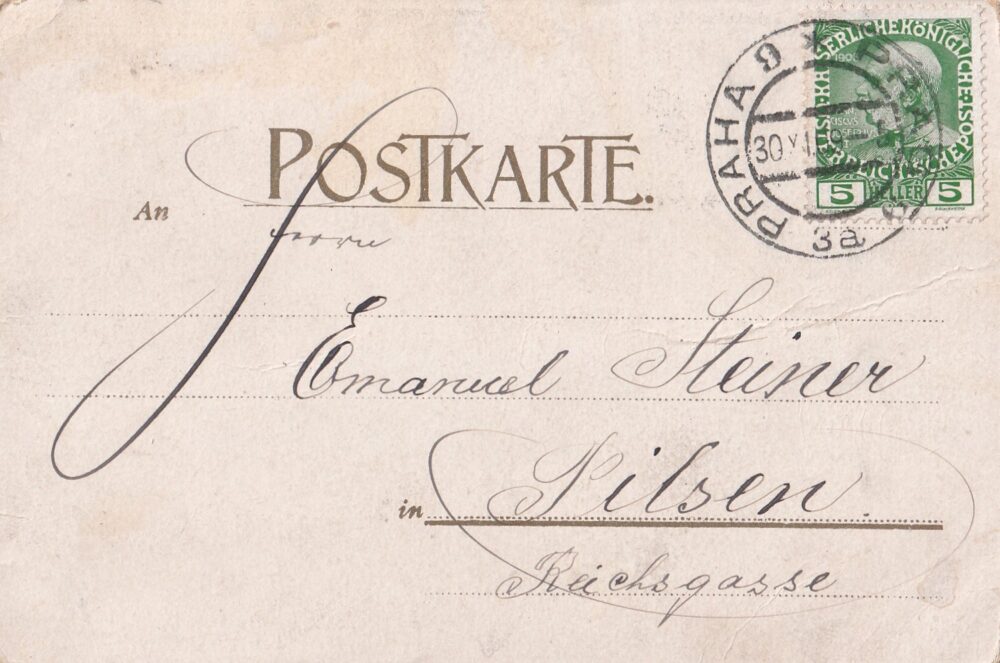 KAISERLICHE KÖNIGLICHE POST
FRANCISCUS JOSEPHUS
5 HELLER 5
PRAHA 9 x PRAG
30 XI
3a
POSTKARTE.
An
Herrn
Emanuel Steiner
in Pilsen.
Reichsgasse